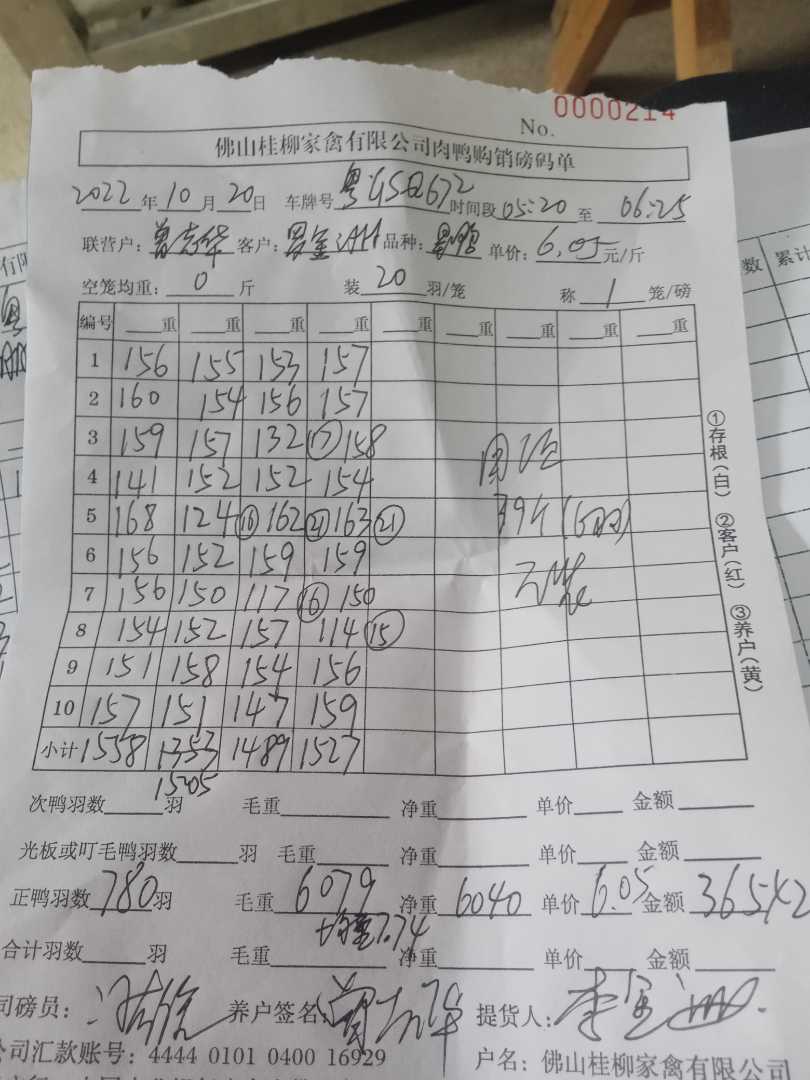 No. 0000214
佛山桂柳家禽有限公司肉鸭购销磅码单
2022年10月20日 车牌号 粤 时间段 05:20 至 06:25
联营户: 客户: 品种: 单价: 6.05 元/斤
空笼均重: 0 斤 装 20 羽/笼 称 1 笼/磅
编号 重 重 重 重 重 重 重 重 重
1 156 155 153 157
2 160 154 156 157
3 159 157 132 ⑰ 158
4 141 152 152 154
5 168 124 ⑯ 162 ㉑ 163 ㉑
6 156 152 159 159
7 156 150 117 ⑯ 150
8 154 152 157 114 ⑮
9 151 158 154 156
10 157 151 147 159
小计 1558 1489 1527
1505
①存根(白) ②客户(红) ③养户(黄)
次鸭羽数 羽 毛重 净重 单价 金额
光板或叮毛鸭羽数 羽 毛重 净重 单价 金额
正鸭羽数 780 羽 毛重 6079 净重 6040 单价 6.05 金额 36542
均重7.74
合计羽数 羽 毛重 净重 单价 金额
司磅员: 养户签名: 提货人:
公司汇款账号: 4444 0101 0400 16929 户名: 佛山桂柳家禽有限公司
数 累计